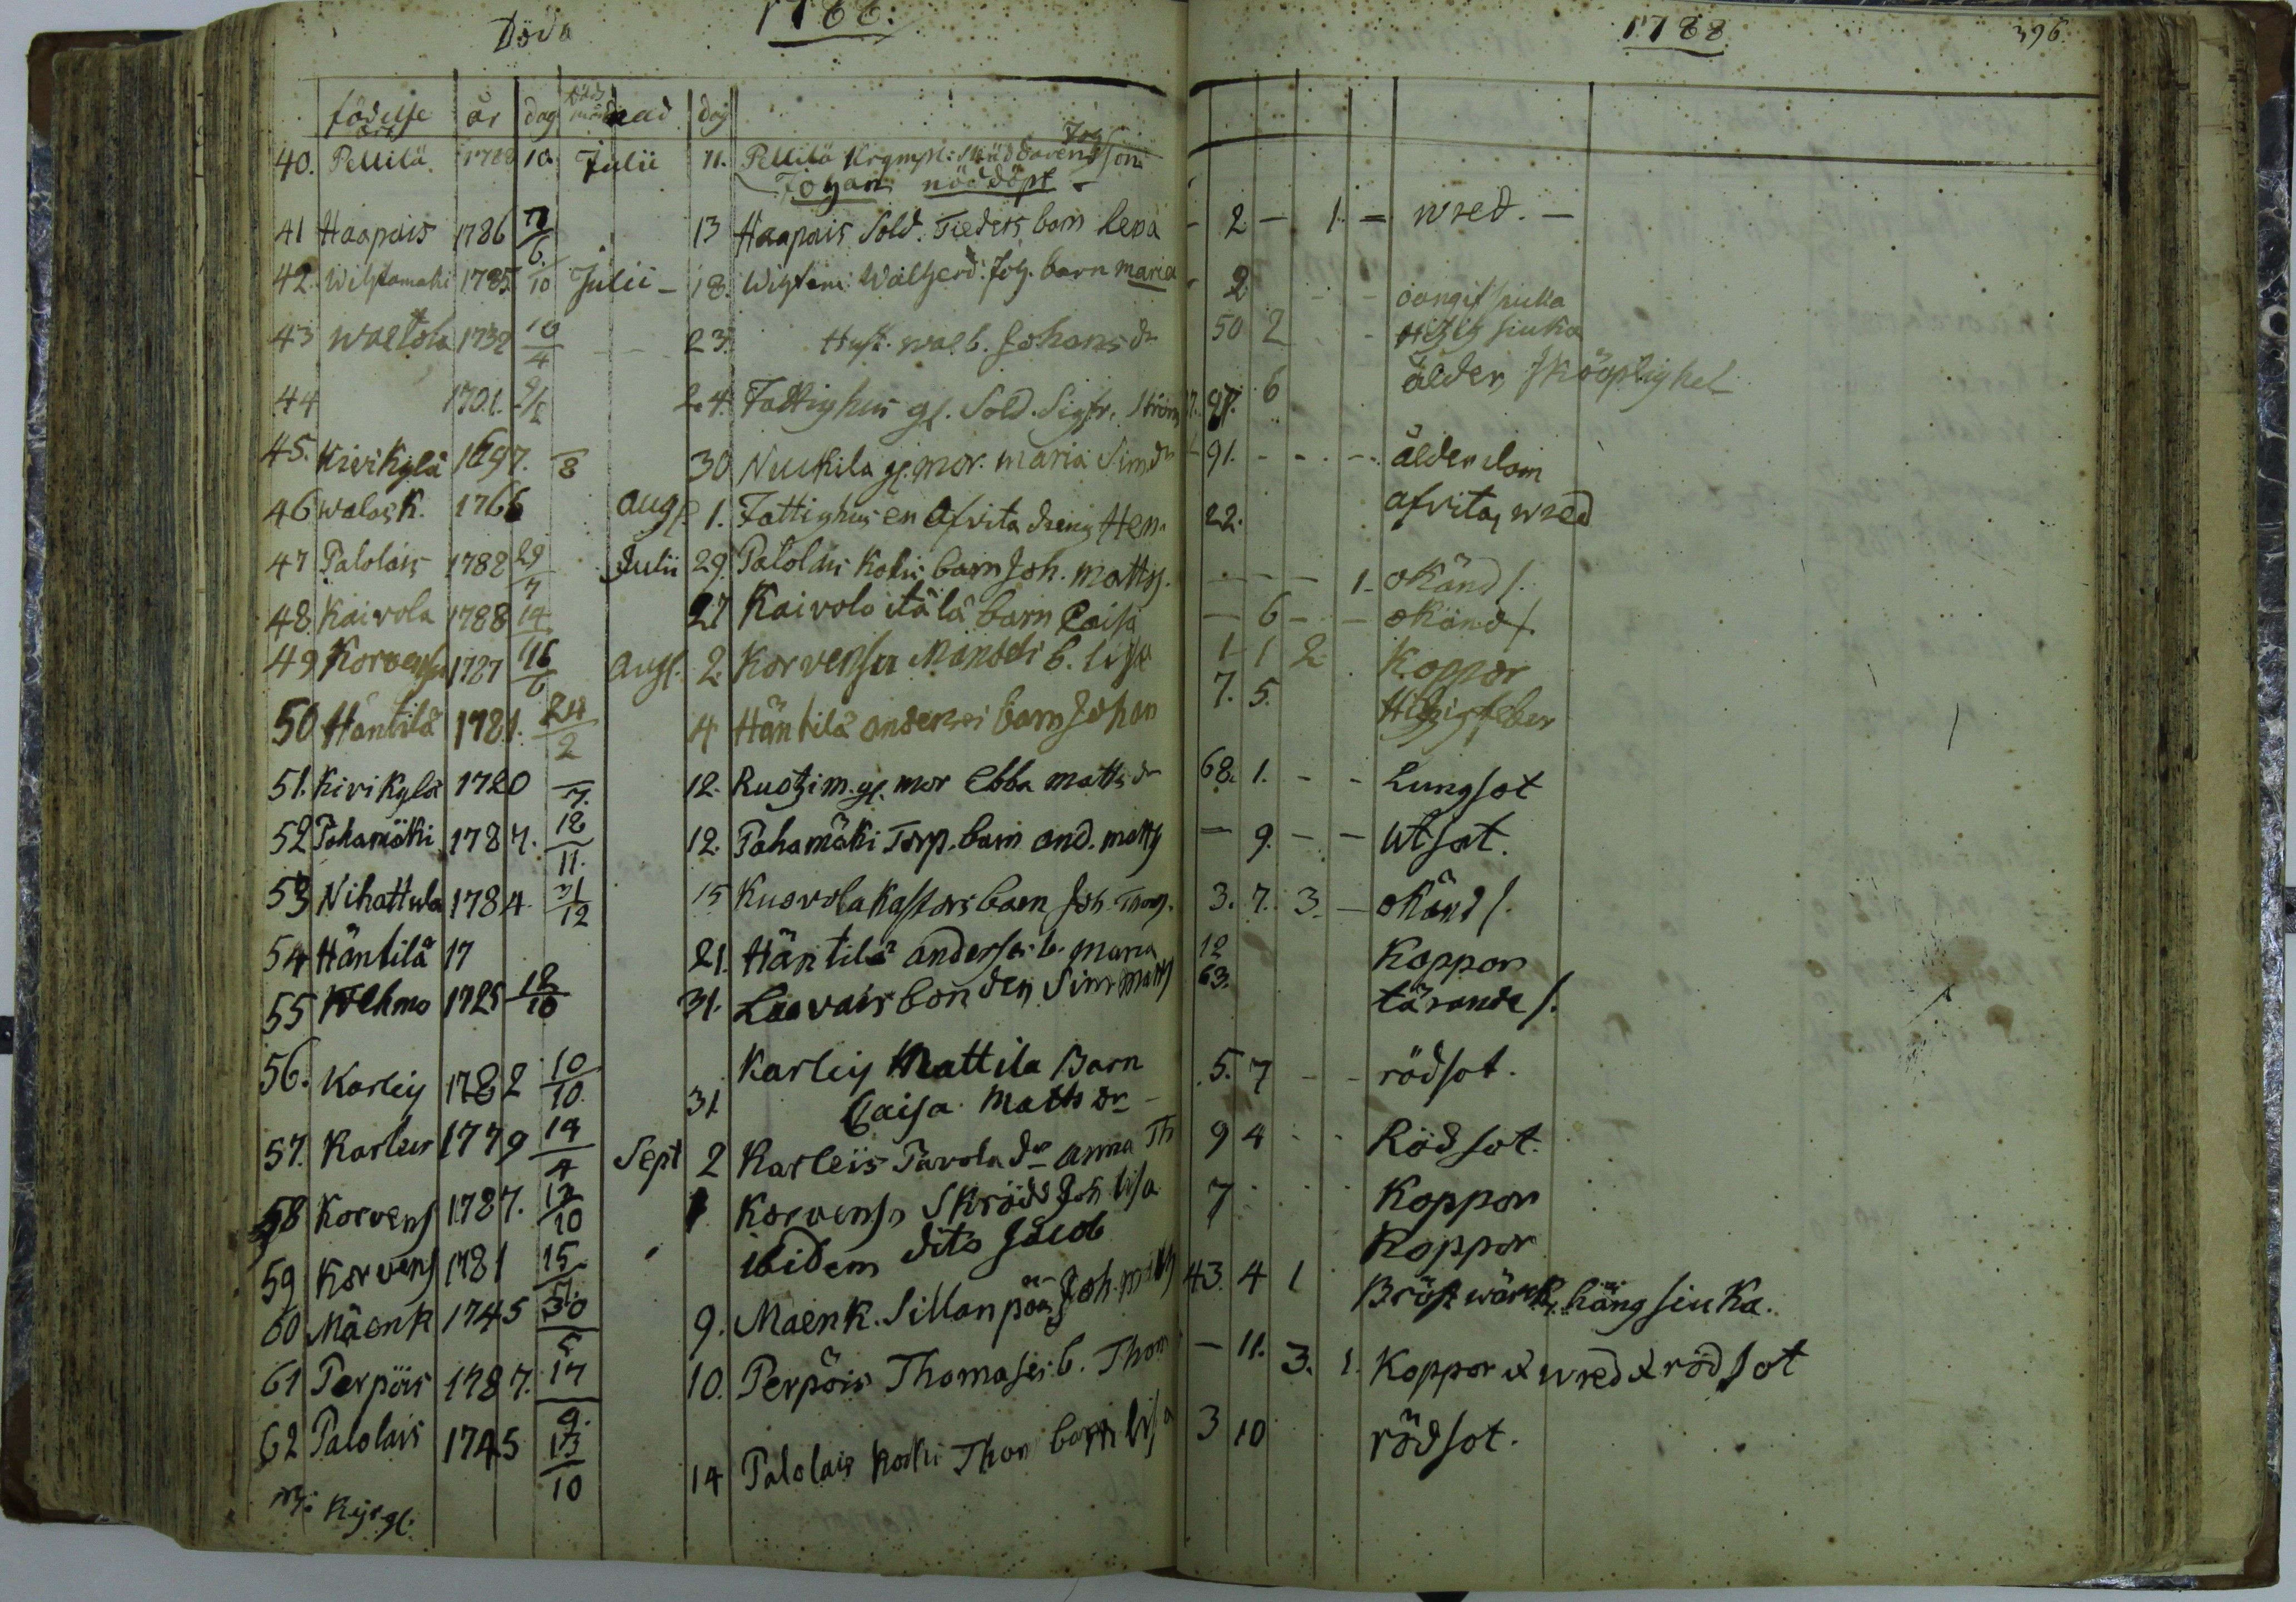 Döda 1788. 1788 396.
födelse ort år dag Död månad dag
40. Pellilä 1788 10. Julii 11. Pellilä Johan nöddöpt
41 Haapais 1786 13 Haapais Sold. barn Lena - 2 - 1. - wred. -
42. 1785 6/10 Julii - 18. Joh. barn maria - 2 - -
43 Waltola 1732 10/4 23. Hust. Walb. Johansdr 50 2 - siuka
44 1701. 24. Fattighus gl. Sold. Sigfr. Ström 87. 6 ålder
45. Kivikylä 1697. /8 30 Nuckila gl. mor. maria Simdr - 91. - - - ålderdom
46 Walask. 1766 Aug. 1. Fattighus en afvita dreng Hen. 22. afvita, wred
47 Palolais 1788 29/7 Julii 29. Palolais Koki barn Joh. Matts. - - - 1. okänd s.
48. Kaivola 1788 14 27 Kaivola itälä barn Caisa - 6 - - okänd s.
49 Korvens 1787 16/6 Augs. 2. Korvensu b. Lisa 1 1 2 Koppor
50 Häntilä 1781. 24/2 4 Häntilä anderssi barn Johan 7. 5. feber
51. Kivikylä 1720 /7. 12. gl. mor Ebba mattsdr 68. 1. - - Lungsot
52 Pahamäki 1787. 12/11. 12. Pahamäki Torp. barn and. matts - 9. - - utsot.
53 Nihattula 1784 31/12 15 Kuovola barn Joh. Thom. 3. 7. 3. - okänd s.
54 Häntilä 17 21. Häntilä b. maria 12 Koppor
55 Wehmo 1725 12/10 31. Laovais bonden Sim matts 63. tärande s.
56. Karleis 1782 10/10. 31. Karleis Mattila Barn 5. 7 - - rödsot.
Caisa Matts dr -
57. Karleis 1779 14/4 Sept 2 Karleis Pavola dr anna Th 9 4 - - Rödsot.
58 Korvens 1787. 12/10 Korvensu Joh Lisa 7 Koppor
59 Korvens 1781 15/7. ibidem dito Jacob Koppor
60 Mäenk 1745 30/5 9. Maenk. Sillanpää Joh. matts 43. 4 1 Bröst wärck, häng siuka.
61 Perpöis 1787. 17/9. 10. Perpöis Thomasis b. Thom - 11. 3. 1. Koppor & wred & rödsot
62 Palolais 1745 13/10 14 Palolais Koski Thom barn Lisa 3 10 rödsot.